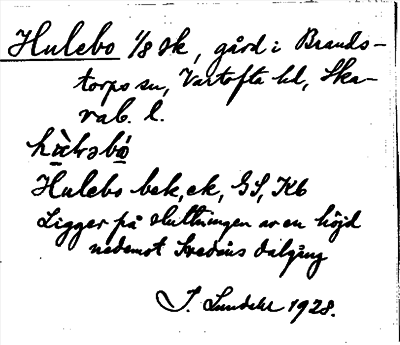 Hulebo 1/8 sk, gård i Brands-
torps sn, Vartofta hd, Ska-
rab. l.
Hulebo bek, ek, GS, Kb
Ligger på sluttningen av en höjd
nedemot Svedåns dalgång
J. Lundahl 1928.